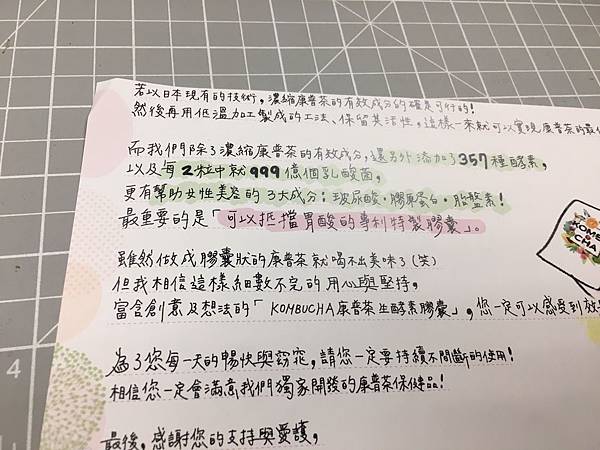 若以日本現有的技術，濃縮康普茶的有效成分的確是可行的！
然後再用低溫加工製成的工法、保留其活性，這樣一來就可以實現康普茶的最
而我們除了濃縮康普茶的有效成分，還另外添加了357種酵素，
以及每2粒中就999億個乳酸菌，
更有幫助女性美容的3大成分：玻尿酸、膠原蛋白、胎盤素！
最重要的是「可以抵擋胃酸的專利特製膠囊」。
雖然做成膠囊狀的康普茶就喝不出美味了（笑）
但我相信這樣細數不完的用心與堅持，
富含創意及想法的「KOMBUCHA康普茶生酵素膠囊」，您一定可以感受到效
為了您每一天的暢快與窈窕，請您一定要持續不間斷的使用！
相信您一定會滿意我們獨家開發的康普茶保健品！
最後，感謝您的支持與愛護，
KOMB
CHA
4